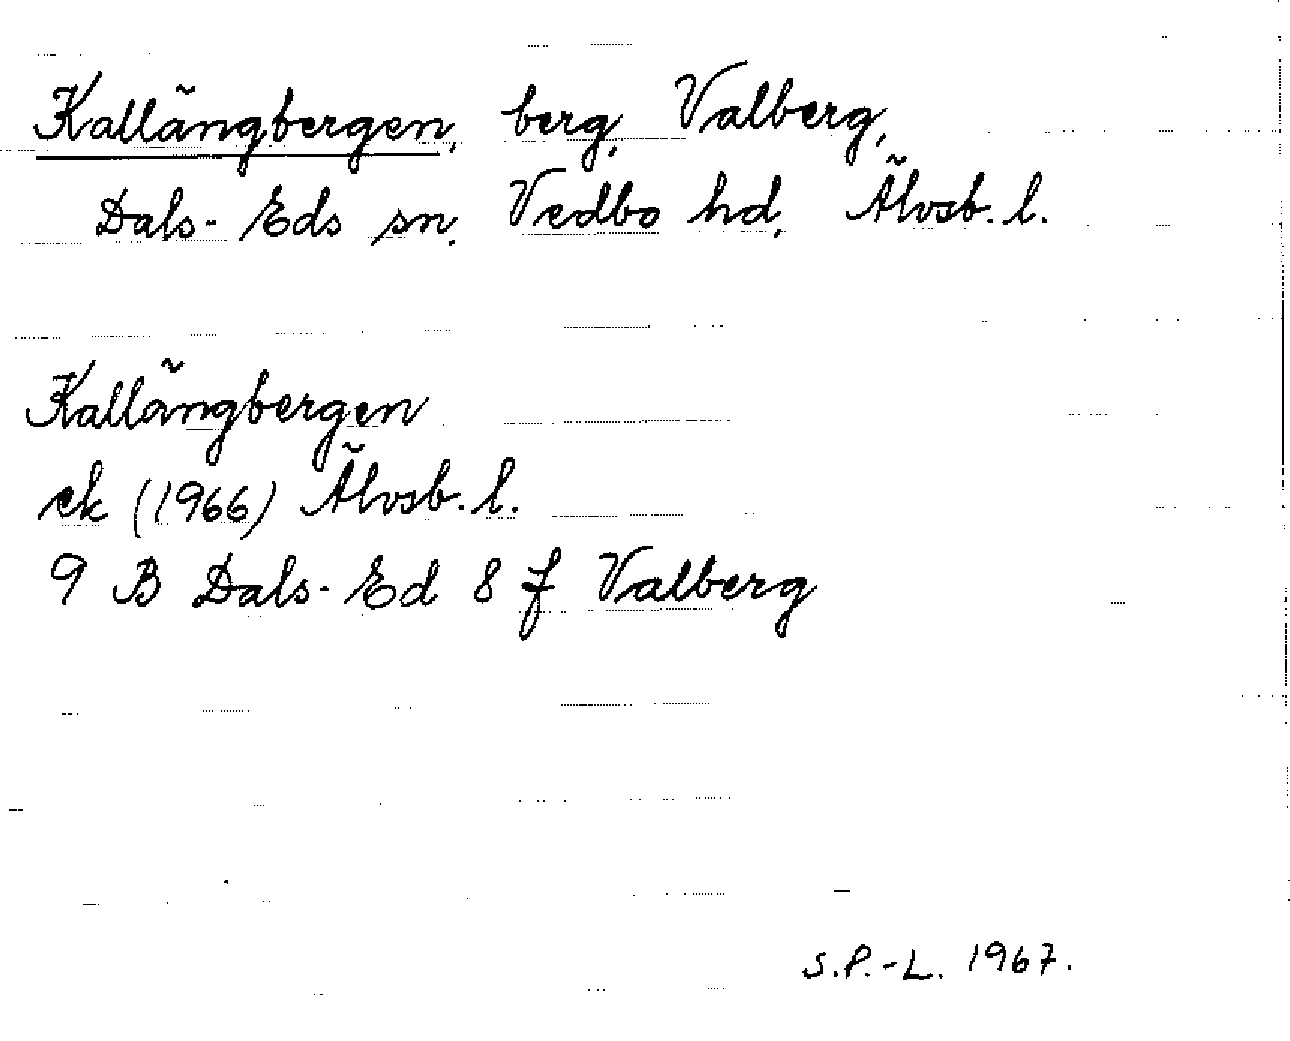 Kallängbergen, berg, Valberg,
Dals-Eds sn, Vedbo hd, Älvsb. l.
Kallängbergen
ek (1966) Älvsb. l.
9 B Dals-Ed 8 f Valberg
S.P.-L. 1967.